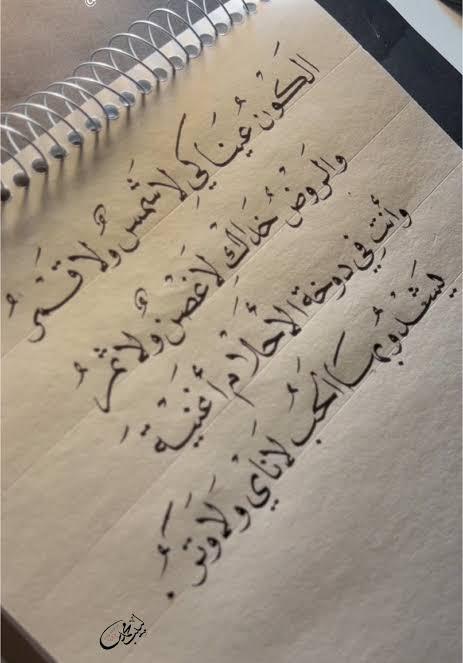 الكَوْن عُينَاكِي لَا شَمْسٌ وَلَا قَمَرُ
والرَوضُ خَدَاكِ لَا غُصْنٌ وَلَا ثَمَرُ
وأنتِ في دوخة الأحْلَامِ أغنيَة
يَشْدُو بهَا الحُبُ لَا نَاي وَلَا وَتَرُ.